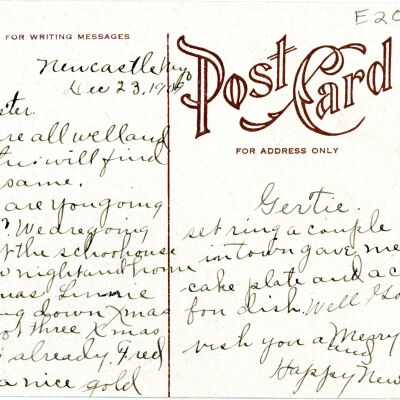 FOR WRITING MESSAGES
Newcastle Wyo
Dec 23, 190
ster.
re all well and
this will find
same.
are you going
? We are going
t the schoolhouse
night and home
mas. Linnie
ng down Xmas
ot three Xmas
already. Fred
a nice gold
E20
Post Card
FOR ADDRESS ONLY
Gertie.
set ring a couple
in town gave me
cake plate and a c
fon dish. Well
wish you a Merry
and
Happy New